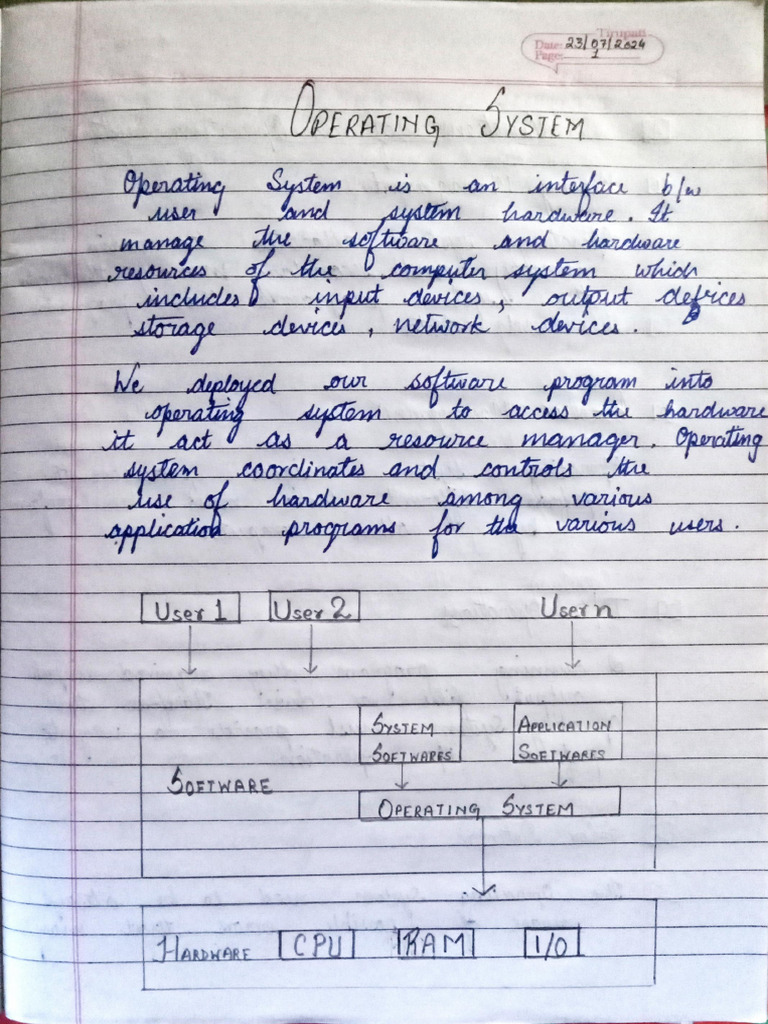 Tirupati
Date: 23/07/2024
Page: 1
OPERATING SYSTEM
Operating System is an interface b/w
user and system hardware. It
manage the software and hardware
resources of the computer system which
includes input devices, output devices
storage devices, network devices.
We deployed our software program into
operating system to access the hardware
it act as a resource manager. Operating
system coordinates and controls the
use of hardware among various
application programs for the various users.
User 1 User 2 User n
SYSTEM APPLICATION
SOFTWARES SOFTWARES
SOFTWARE
OPERATING SYSTEM
HARDWARE CPU RAM I/O